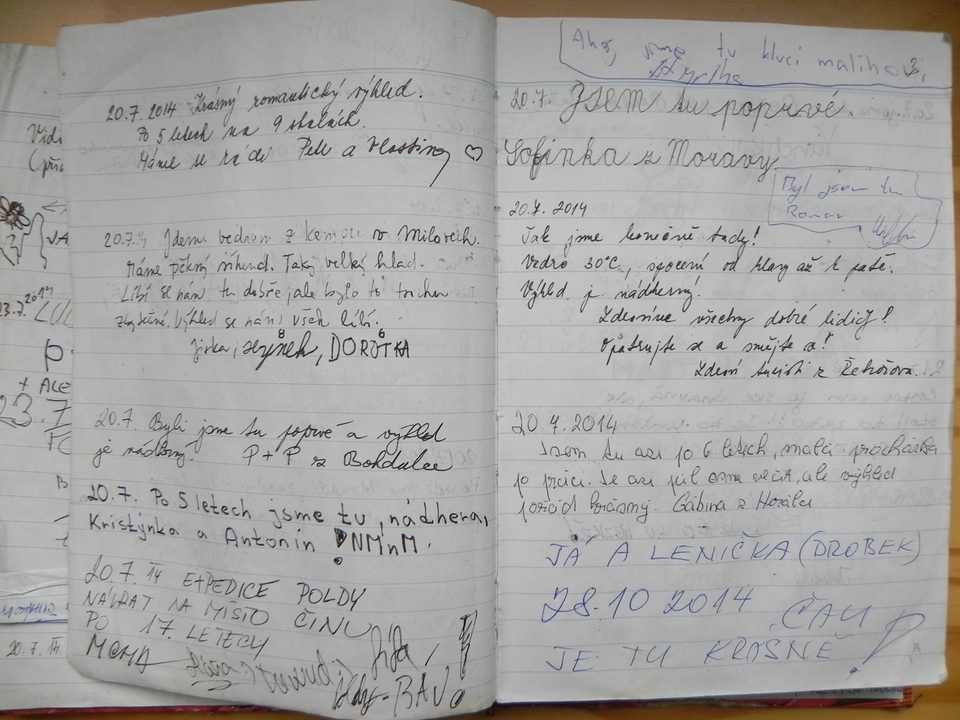 20.7. 2014 Krásný romantický výhled.
Po 5 letech na 9 skalách.
Máme se rádi Petr a Vlastina
20.7.14 Jdeme vedrem z kempu v Milovech.
Máme pěkný víkend. Taky velký hlad.
Líbí se nám tu dobře, ale bylo to trochu
Výhled se nám všem líbí.
Jirka, Hynek, DOROTKA
8 6
20.7. Byli jsme tu poprvé a výhled
je nádherný. P + P z Bohdalce
20.7. Po 5 letech jsme tu, nádhera,
Kristýnka a Antonín NMnM.
20.7. 14 EXPEDICE POLDY
NÁVRAT NA MÍSTO ČINU
PO 17. LETECH
Ahoj, jsme tu kluci
20.7. JSEM tu poprvé.
Sofinka z Moravy
Byl jsem tu
Roman
20.7. 2014
Tak jsme konečně tady!
Vedro 30°C, spocení od hlavy až k patě.
Výhled je nádherný!
Zdravíme všechny dobré lidičky!
Opatrujte se a smějte se!
Zdraví turisti z
20.7.2014
Jsem tu asi po 6 letech, malá procházka
po práci. Je asi půl osmé večer, ale výhled
pořád krásný. Gábina z
JÁ A LENIČKA (DROBEK)
28.10 2014 ČAU
JE TU KRÁSNĚ
23.7.2014
+ ALE
23.7
20.7. 14